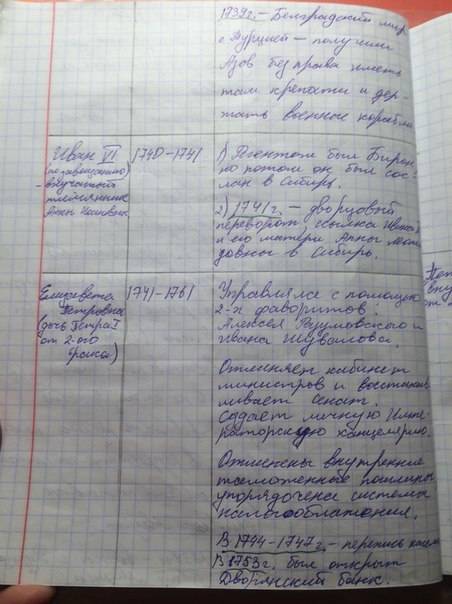 1739г. – Белградский мир
с Турцией – получили
Азов без права иметь
там крепости и дер-
жать военные корабли
Иван VI
(по завещанию)
- внучатый
племянник
Анны Иоановны
1740-1741
1) Регентом был Бирон,
но потом он был сос-
лан в Сибирь.
2) 1741г. – дворцовый
переворот ссылка Ивана
и его матери Анны Леопо
довны в Сибирь.
Елизавета
Петровна
(дочь Петра I
от 2-ого
брака)
1741-1761
Управляла с помощью
2-х фаворитов.
Алексея Разумовского и
Ивана Шувалова.
Отменяет кабинет
министров и восстанав
ливает сенат.
Создает личную Импе
раторскую канцелярию.
Отменены внутренние
таможенные пошлины
упорядочена система
налогообложения.
В 1744-1747г. – перепись
В 1753г. был открыт
Дворянский банк.